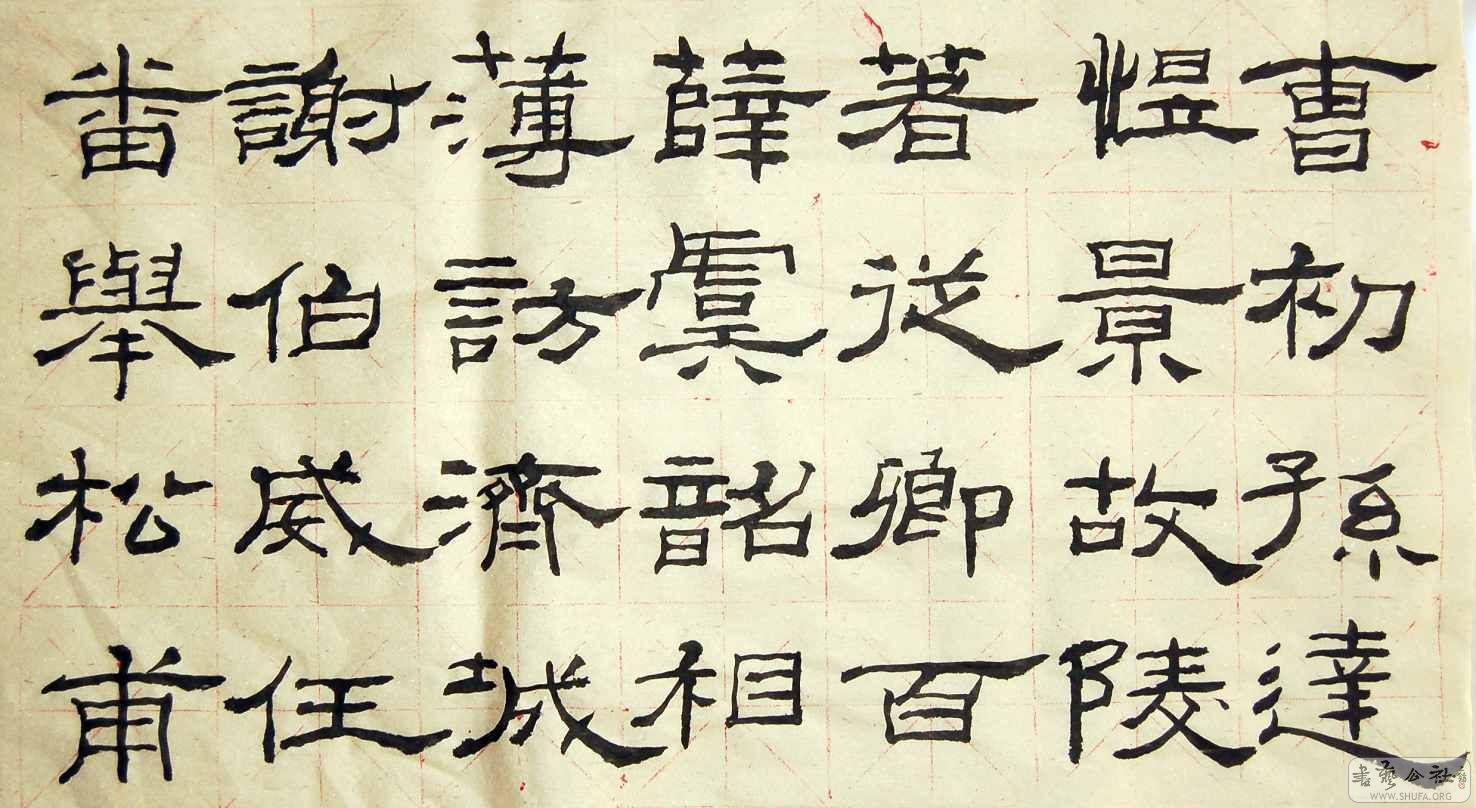 曹初孫達
悝景故陵
著從卿百
薛虞韶相
薄訪濟城
謝伯威任
番舉松甫
書藝公社
WWW.SHUFA.ORG